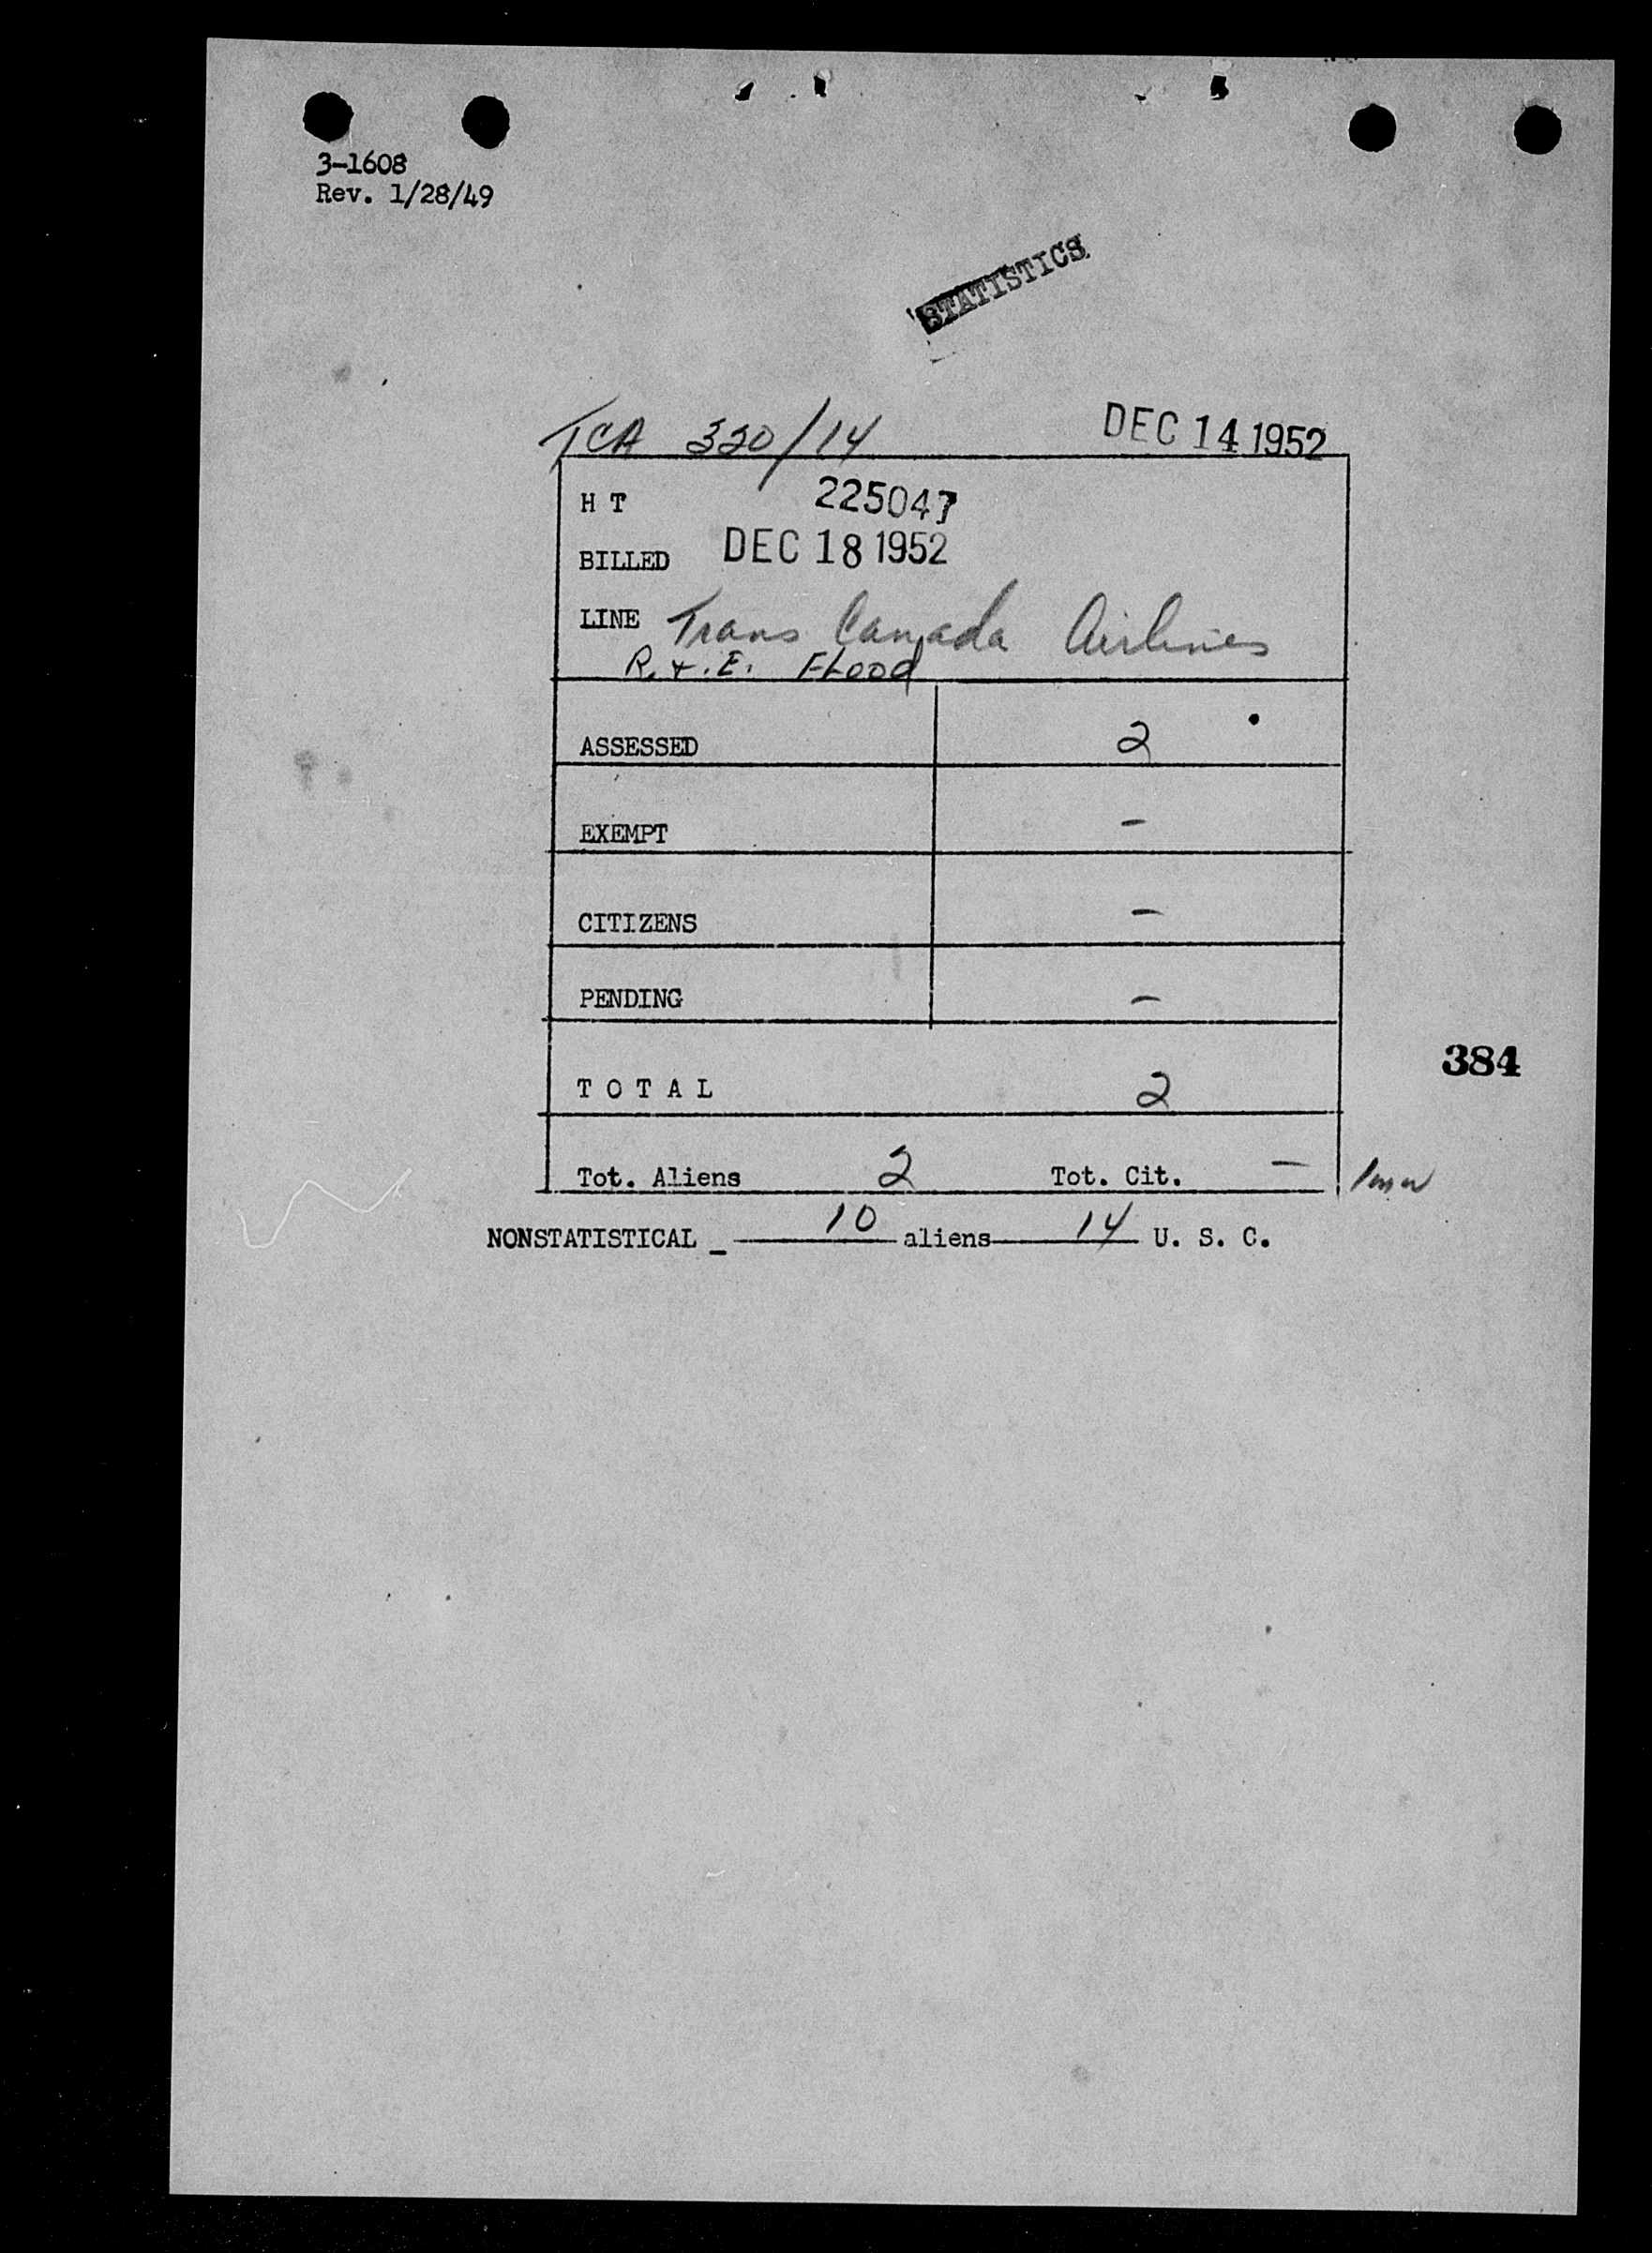 3-1608
Rev. 1/28/49
STATISTICS
TCA 320/14 DEC 14 1952
H T 225047
BILLED DEC 18 1952
LINE Trans Canada Airlines
R. & E. Flood
ASSESSED 2
EXEMPT -
CITIZENS -
PENDING -
384
T O T A L 2
Tot. Aliens 2 Tot. Cit. -
NONSTATISTICAL _ 10 aliens 14 U. S. C.